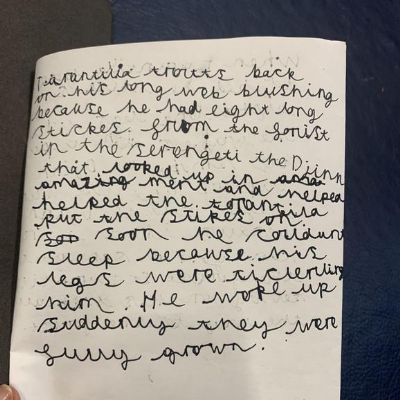 Tarantilla trotts back
on his long web blushing
because he had eight long
stickes from the forist
in the serengeti the Djinn
that looked up in
amazing ment and helped
helped the toranti
put the stikes orila
soon he couldunt
sleep because his
legs were ticierling
him. He woke up
suddenly they were
furry grown.